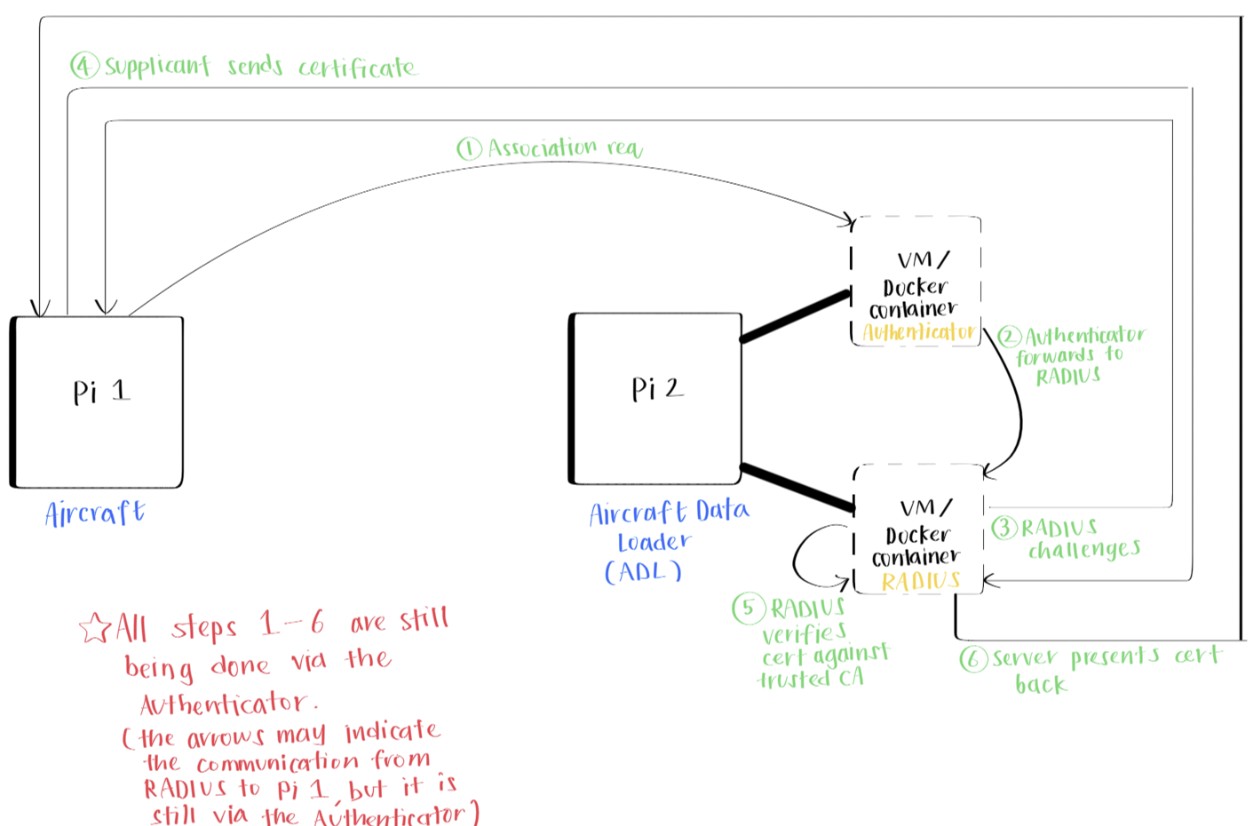 ④ Supplicant sends certificate
① Association req
VM/
Docker
container
Authenticator
② Authenticator
forwards to
RADIUS
Pi 1
Aircraft
Pi 2
Aircraft Data
Loader
(ADL)
VM/
Docker
container
RADIUS
③ RADIUS
challenges
⑤ RADIUS
verifies
cert against
trusted CA
⑥ Server presents cert
back
☆ All steps 1-6 are still
being done via the
Authenticator.
(the arrows may indicate
the communication from
RADIUS to Pi 1, but it is
still via the Authenticator)